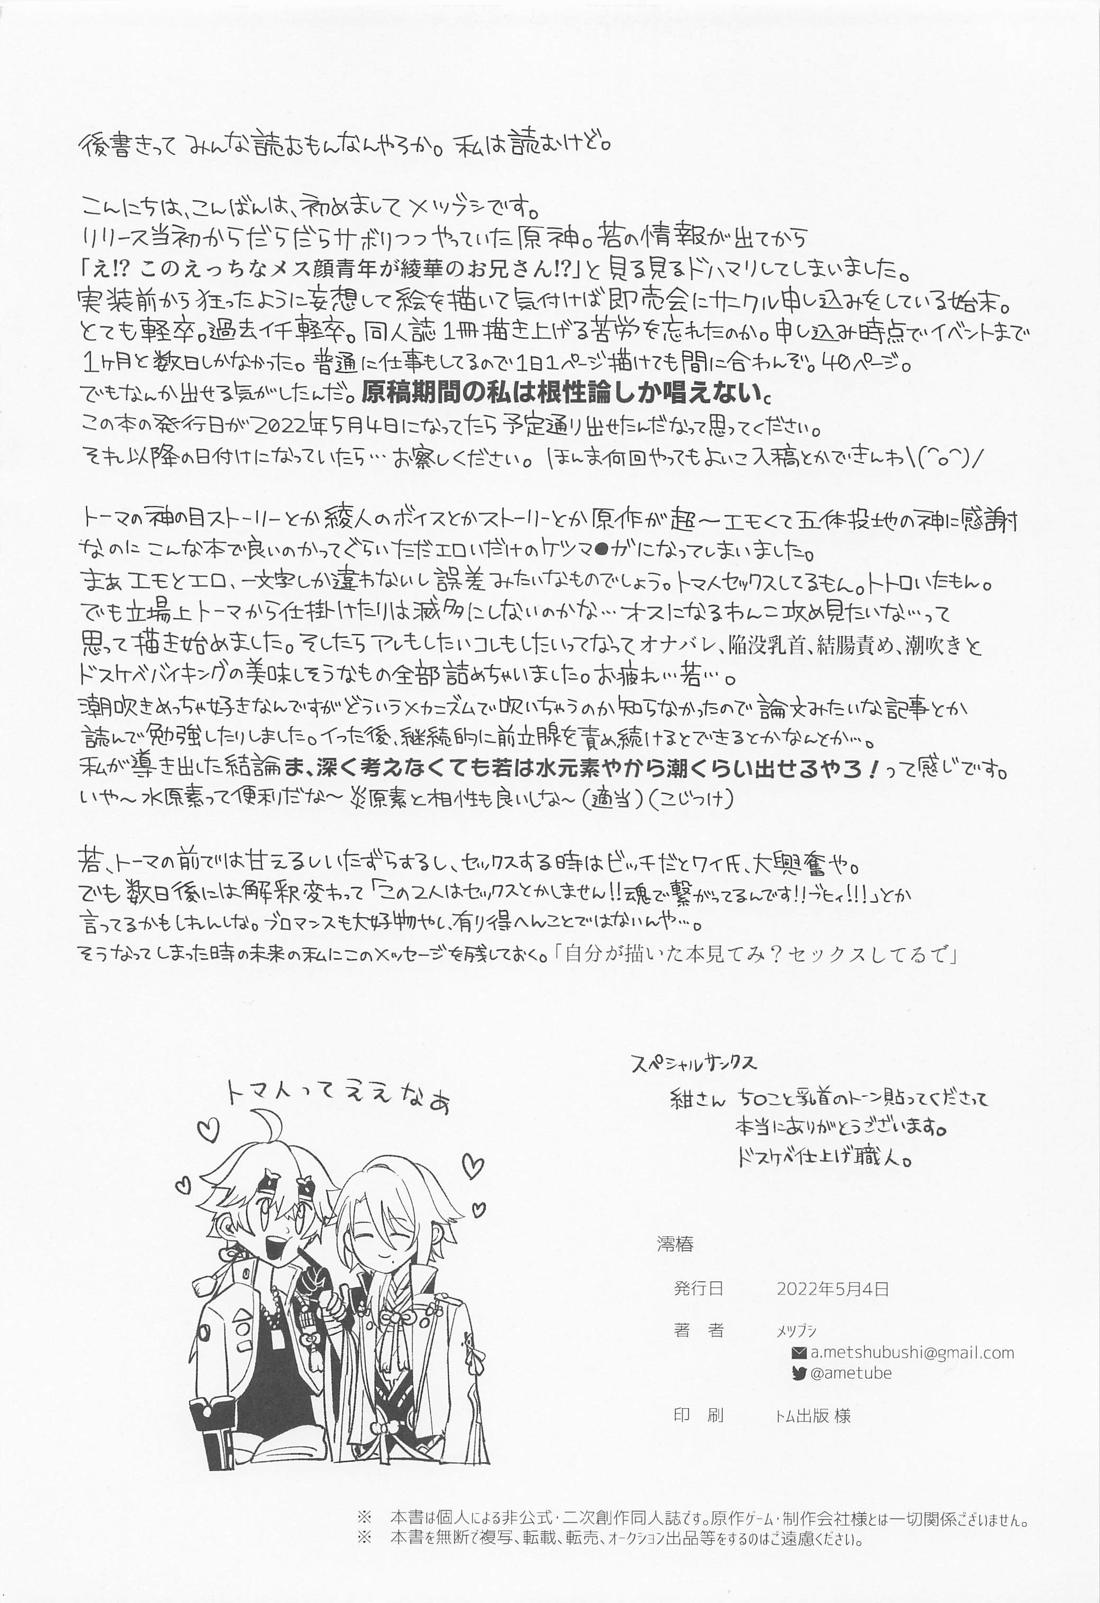 後書きって みんな読むもんなんやろか。私は読むけど。
こんにちは、こんばんは、初めましてメツブシです。
リリース当初からだらだらサボりつつやっていた原神。若の情報が出てから
「え!? このえっちなメス顔青年が綾華のお兄さん!?」と見る見るドハマりしてしまいました。
実装前から狂ったように妄想して絵を描いて気付けば即売会にサークル申し込みをしている始末。
とても軽卒。過去イチ軽卒。同人誌1冊描き上げる苦労を忘れたのか。申し込み時点でイベントまで
1ヶ月と数日しかなかった。普通に仕事もしてるので1日1ページ描けても間に合わんぞ。40ページ。
でもなんか出せる気がしたんだ。原稿期間の私は根性論しか唱えない。
この本の発行日が2022年5月4日になってたら予定通り出せたんだなって思ってください。
それ以降の日付けになっていたら…お察しください。ほんま何回やってもよいこ入稿とかできんわ\(^o^)/
トーマの神の目ストーリーとか綾人のボイスとかストーリーとか原作が超〜エモくて五体投地の神に感謝
なのにこんな本で良いのかってぐらいただエロいだけのケツマ●がになってしまいました。
まぁエモとエロ、一文字しか違わないし誤差みたいなものでしょう。トマ人セックスしてるもん。トトロいたもん。
でも立場上トーマから仕掛けたりは滅多にしないのかな…オスになるわんこ攻め見たいな…って
思って描き始めました。そしたらアレもしたいコレもしたいってなってオナバレ、陥没乳首、結腸責め、潮吹きと
ドスケベバイキングの美味しそうなもの全部詰めちゃいました。お疲れ…若…。
潮吹きめっちゃ好きなんですがどういうメカニズムで吹いちゃうのか知らなかったので論文みたいな記事とか
読んで勉強したりしました。イった後、継続的に前立腺を責め続けるとできるとかなんとか…。
私が導き出した結論ま、深く考えなくても若は水元素やから潮くらい出せるやろ！って感じです。
いや〜水原素って便利だな〜炎原素と相性も良いしな〜(適当)(こじつけ)
若、トーマの前では甘えるしいたずらするし、セックスする時はビッチだとワイ氏、大興奮や。
でも数日後には解釈変わって「この2人はセックスとかしません!!魂で繋がってるんです!!ブヒィ!!!」とか
言ってるかもしれんしな。ブロマンスも大好物やし、有り得へんことではないんや…。
そうなってしまった時の未来の私にこのメッセージを残しておく。「自分が描いた本見てみ？セックスしてるで」
トマ人ってええなぁ
スペシャルサンクス
紺さん ち〇こと乳首のトーン貼ってくださって
本当にありがとうございます。
ドスケベ仕上げ職人。
澪椿
発行日 2022年5月4日
著 者 メツブシ
a.metshubushi@gmail.com
@ametube
印 刷 トム出版 様
※ 本書は個人による非公式・二次創作同人誌です。原作ゲーム・制作会社様とは一切関係ございません。
※ 本書を無断で複写、転載、転売、オークション出品等をするのはご遠慮ください。